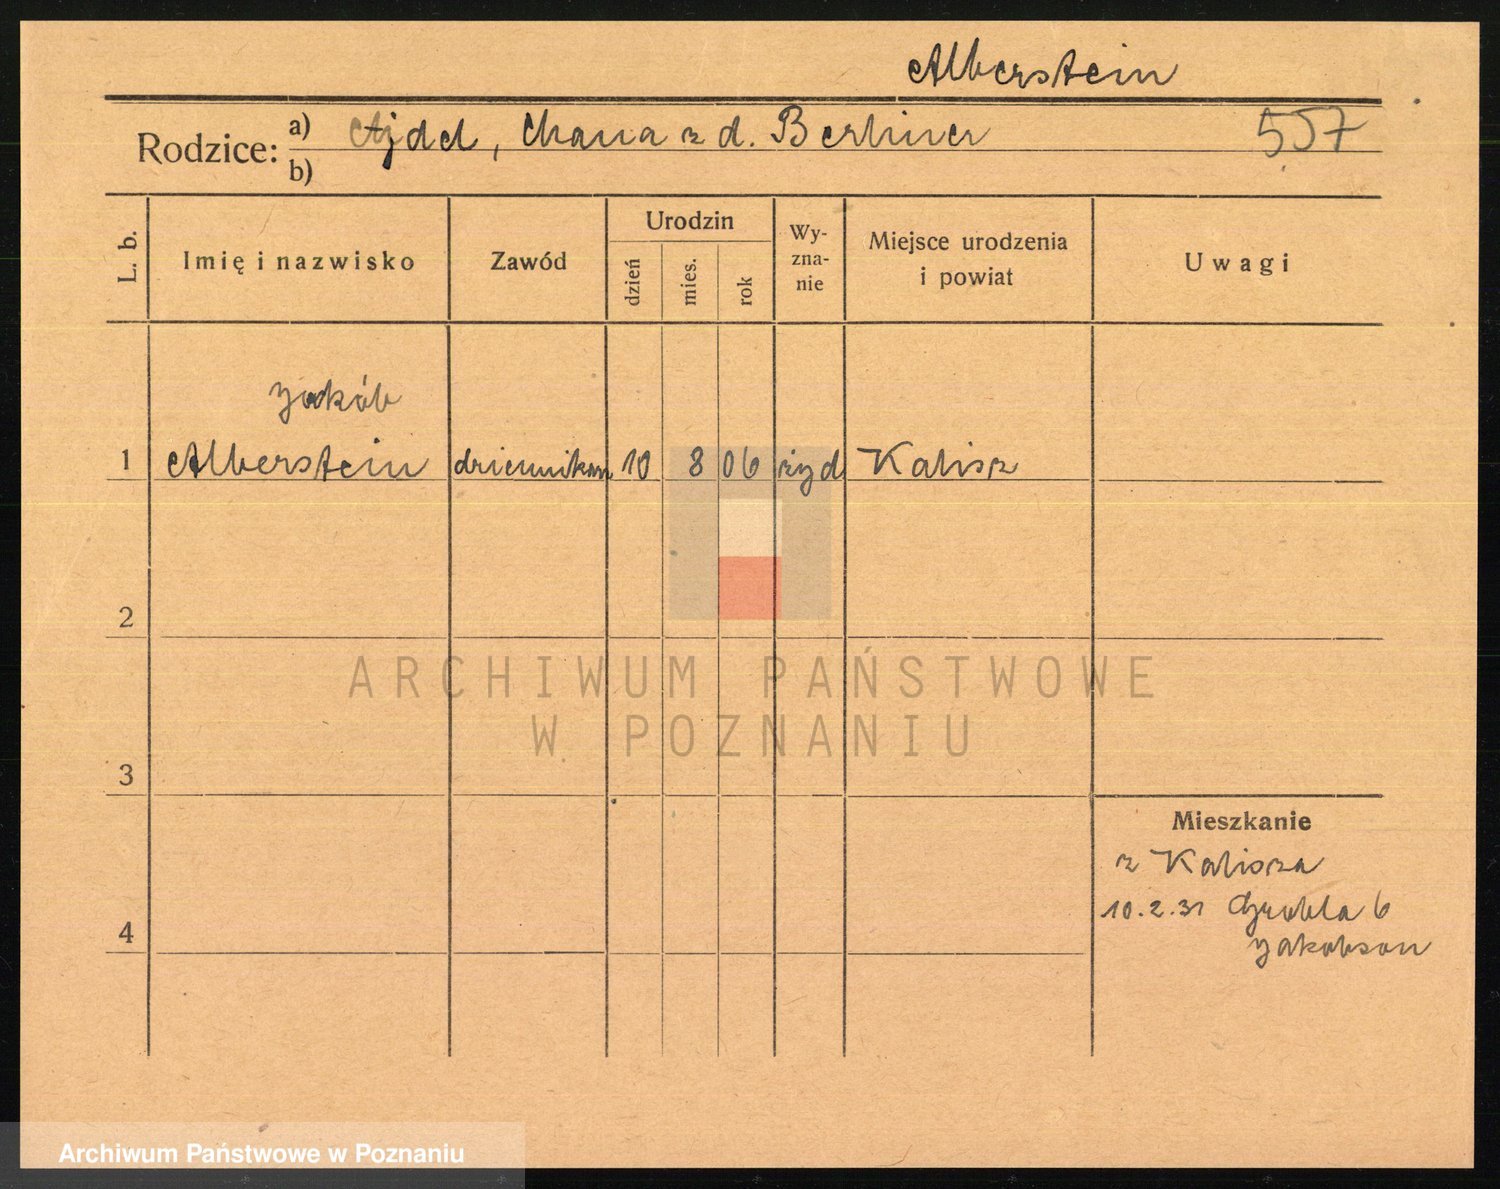 Alberstein
Rodzice: a) Ajdel, Chana z d. Berliner 557
b)
L. b. Imię i nazwisko Zawód Urodzin dzień mies. rok Wy-zna-nie Miejsce urodzenia i powiat Uwagi
Jakób
1 Alberstein dziennikarz 10 8 06 żyd Kalisz
2
ARCHIWUM PAŃSTWOWE
W POZNANIU
3
Mieszkanie
z Kalisza
4 10.2.31 Grobla 6
Jakobson
Archiwum Państwowe w Poznaniu